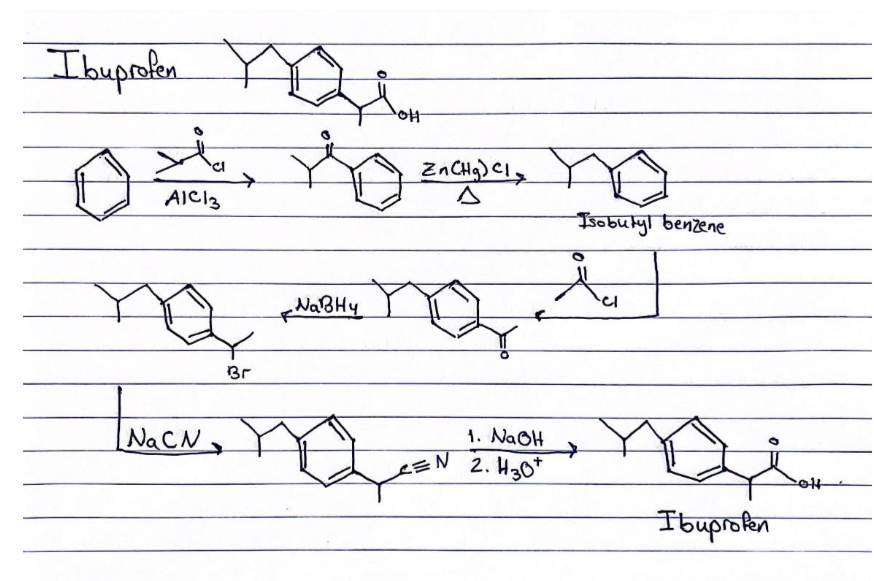 Ibuprofen
O
OH
O
Cl
AlCl3
O
Zn(Hg)Cl
Δ
Isobutyl benzene
O
Cl
NaBH4
O
Br
NaCN
C≡N
1. NaOH
2. H3O+
O
OH
Ibuprofen